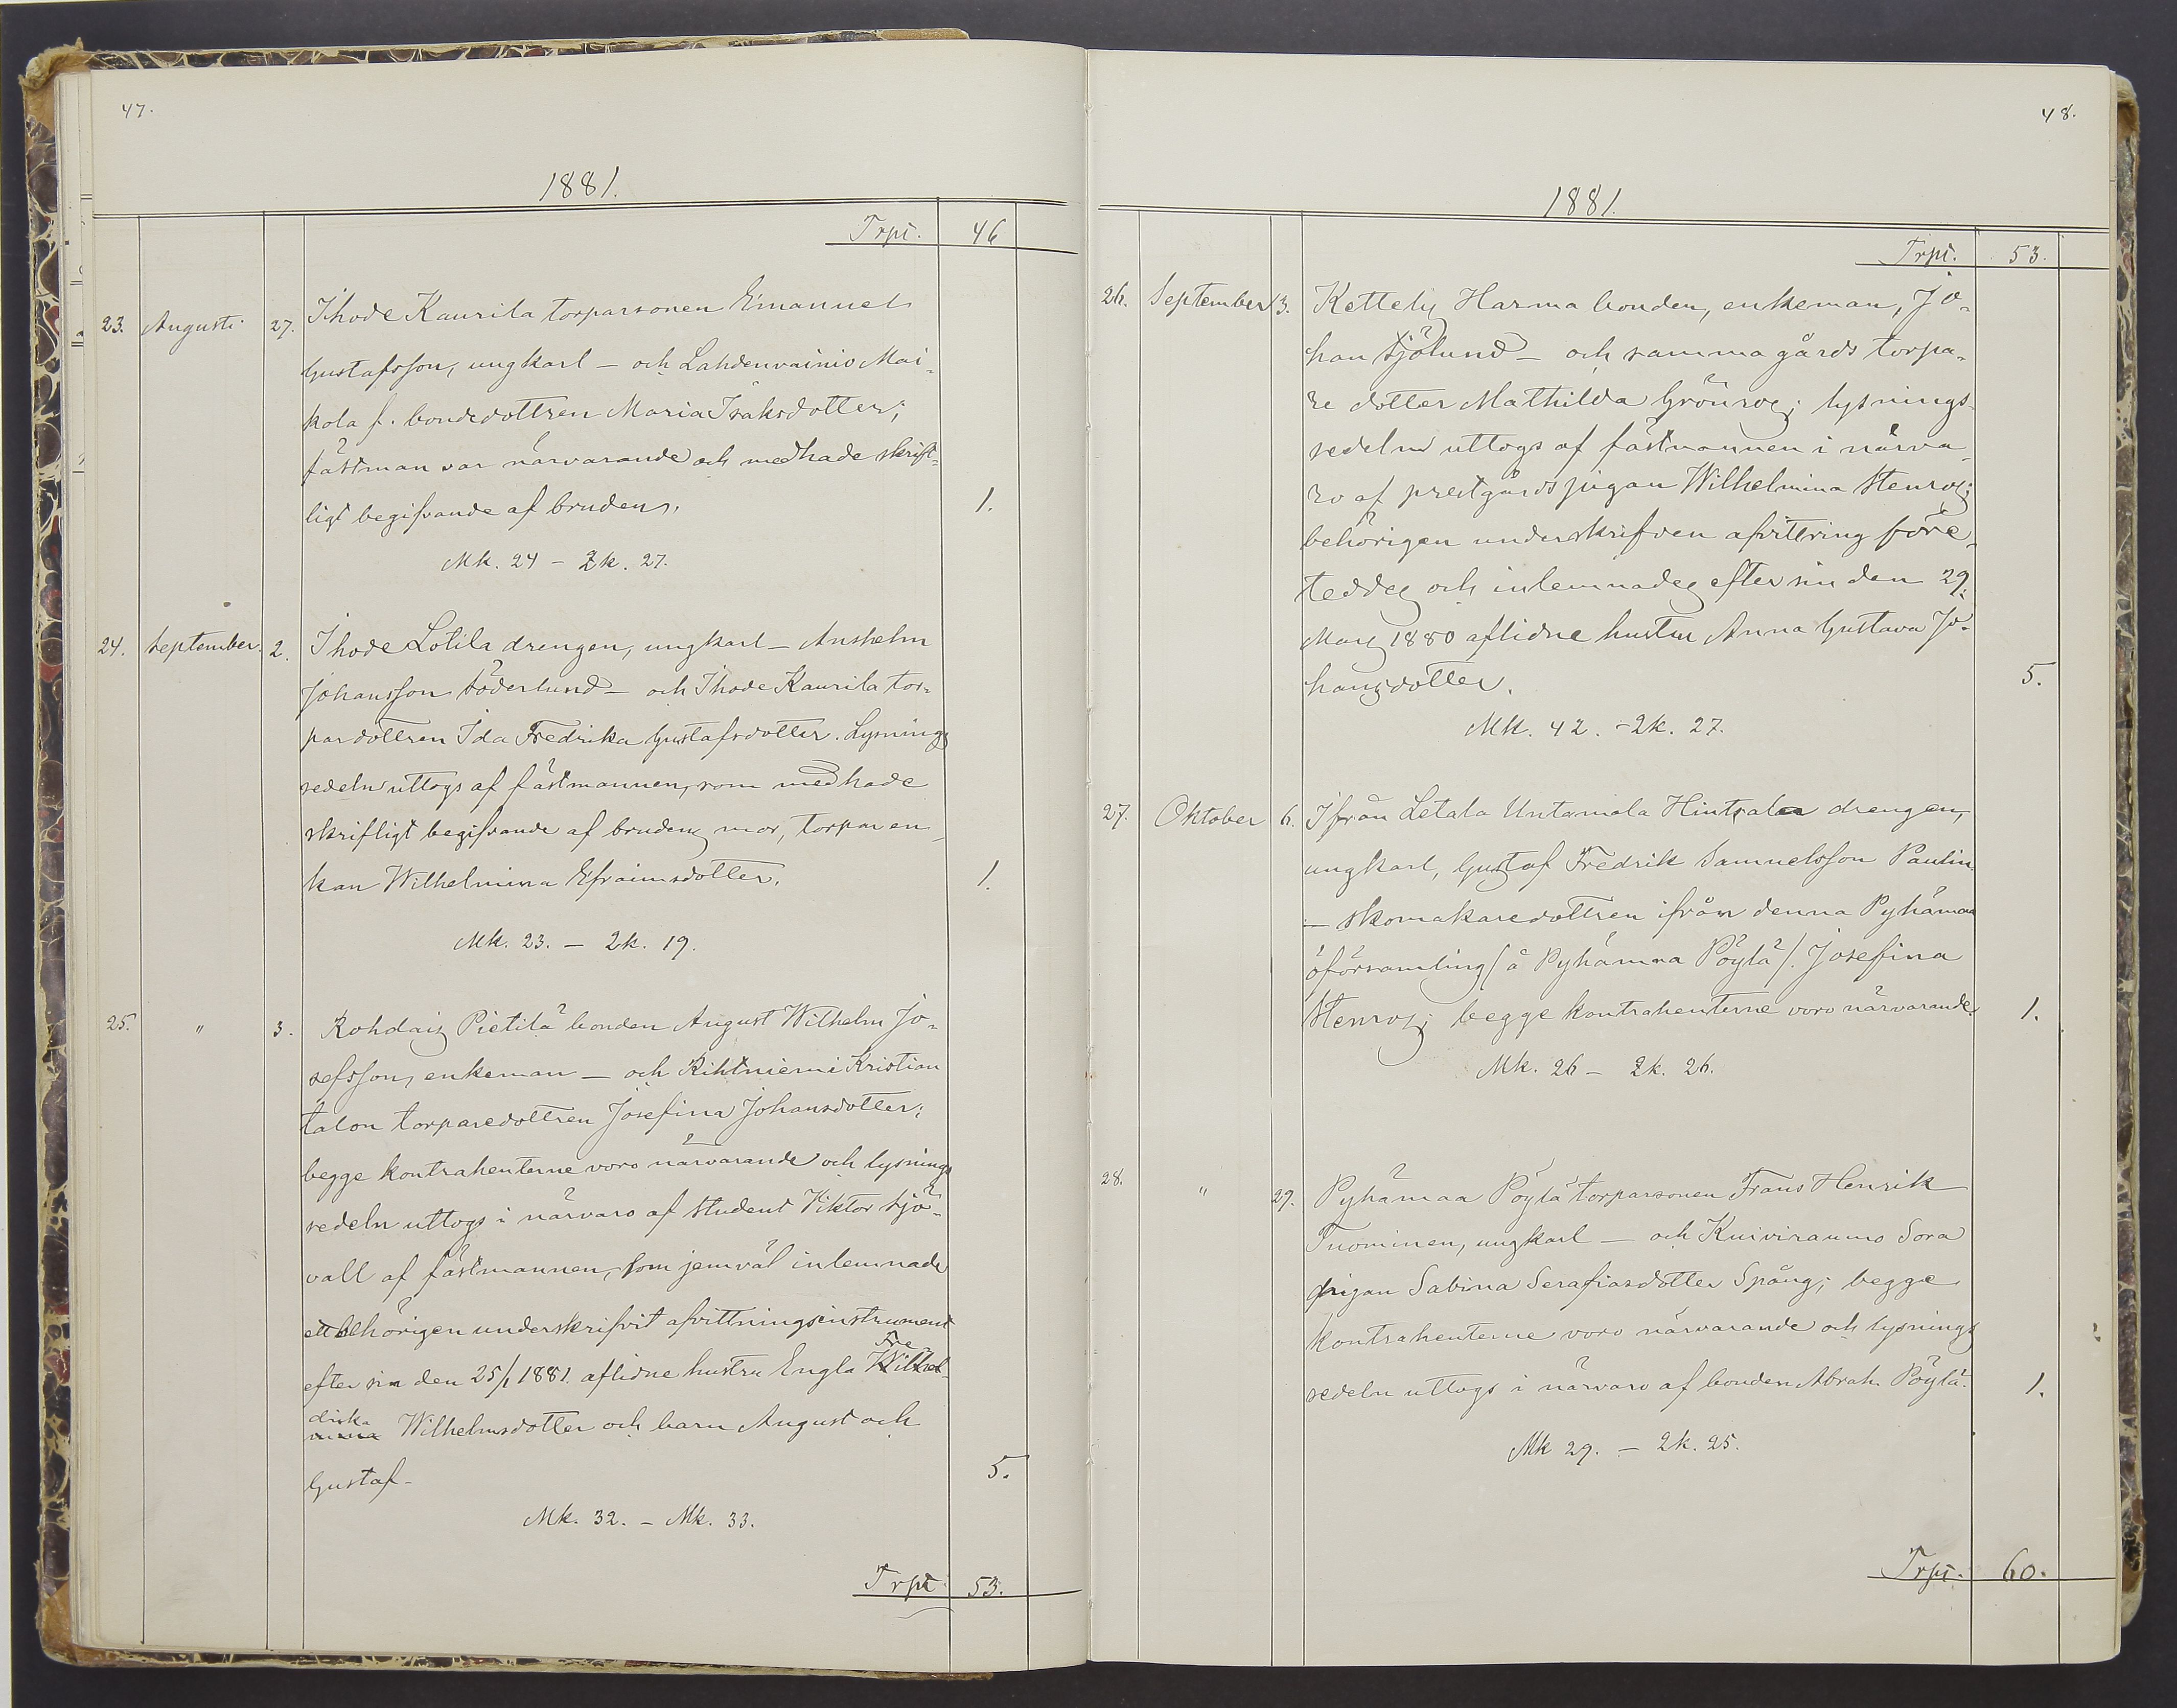 47.
1881.
Trpt. 46
23. Augusti 27. Ihode Kaurila torparsonen Emanuel
Gustafsson, ungkarl – och Lahdenvainio Mai-
kola f. bondedottren Maria Isaksdotter;
fästman var närvarande och medhade skrift-
ligt begifvande af bruden. 1.
Mk. 24 – Qk. 27.
24. September. 2. Ihode Lotila drengen, ungkarl – Anshelm
Johansson Söderlund – och Ihode Kaurila tor-
pardottren Ida Fredrika Gustafsdotter. Lysnings
sedeln uttogs af fästmannen, som medhade
skrifligt begifvande af brudens mor, torparen-
kan Wilhelmina Efraimsdotter. 1.
Mk. 23. – Qk. 19.
25. " 3. Rohdais Pietilä bonden August Wilhelm Jo-
sefsson, enkeman – och Rihtniemi Kristian
talon torparedottren Josefina Johansdotter;
begge kontrahenterne voro närvarande och lysnings
sedeln uttogs i närvaro af student Viktor Sjö-
vall af fästmannen, som jemväl inlemnade
ett behörigen underskrifvit afvittringsinstrument
efter sin den 25/1 1881. aflidne hustru Engla Wilhel- Fre-
mina drika Wilhelmsdotter och barn August och
Gustaf – 5.
Mk. 32. – Mk. 33.
Trpt 53.
48.
1881.
Trpt. 53.
26. September 3. Kettely Harma bonden, enkeman, Jo-
han Sjölund – och samma gårds torpa-
re dotter Mathilda Grönros; lysnings-
sedeln uttogs af fästmannen i närva-
ro af prestgårdspigan Wilhelmina Stenros;
behörigen underskrifven afvittring före-
teddes och inlemnades efter sin den 29.
Mars 1880 aflidne hustru Anna Gustava Jo-
hansdotter. 5.
Mk. 42. – Qk. 27.
27. Oktober 6. Ifrån Letala Untamala Hintsala drengen,
ungkarl, Gustaf Fredrik Samuelsson Paulin
– skomakaredottren ifrån denna Pyhämaa
öförsamling (å Pyhämaa Pöylä). Josefina
Stenros; begge kontrahenterne voro närvarande. 1.
Mk. 26 – Qk. 26.
28. " 29. Pyhämaa Pöylä torparsonen Frans Henrik
Tuominen, ungkarl – och Kuivirauma Sora
pigan Sabina Serafiasdotter Spång; begge
kontrahenterne voro närvarande och lysnings
sedeln uttogs i närvaro af bonden Abrah. Pöylä. 1.
Mk 29. – Qk. 25.
Trpt. 60.